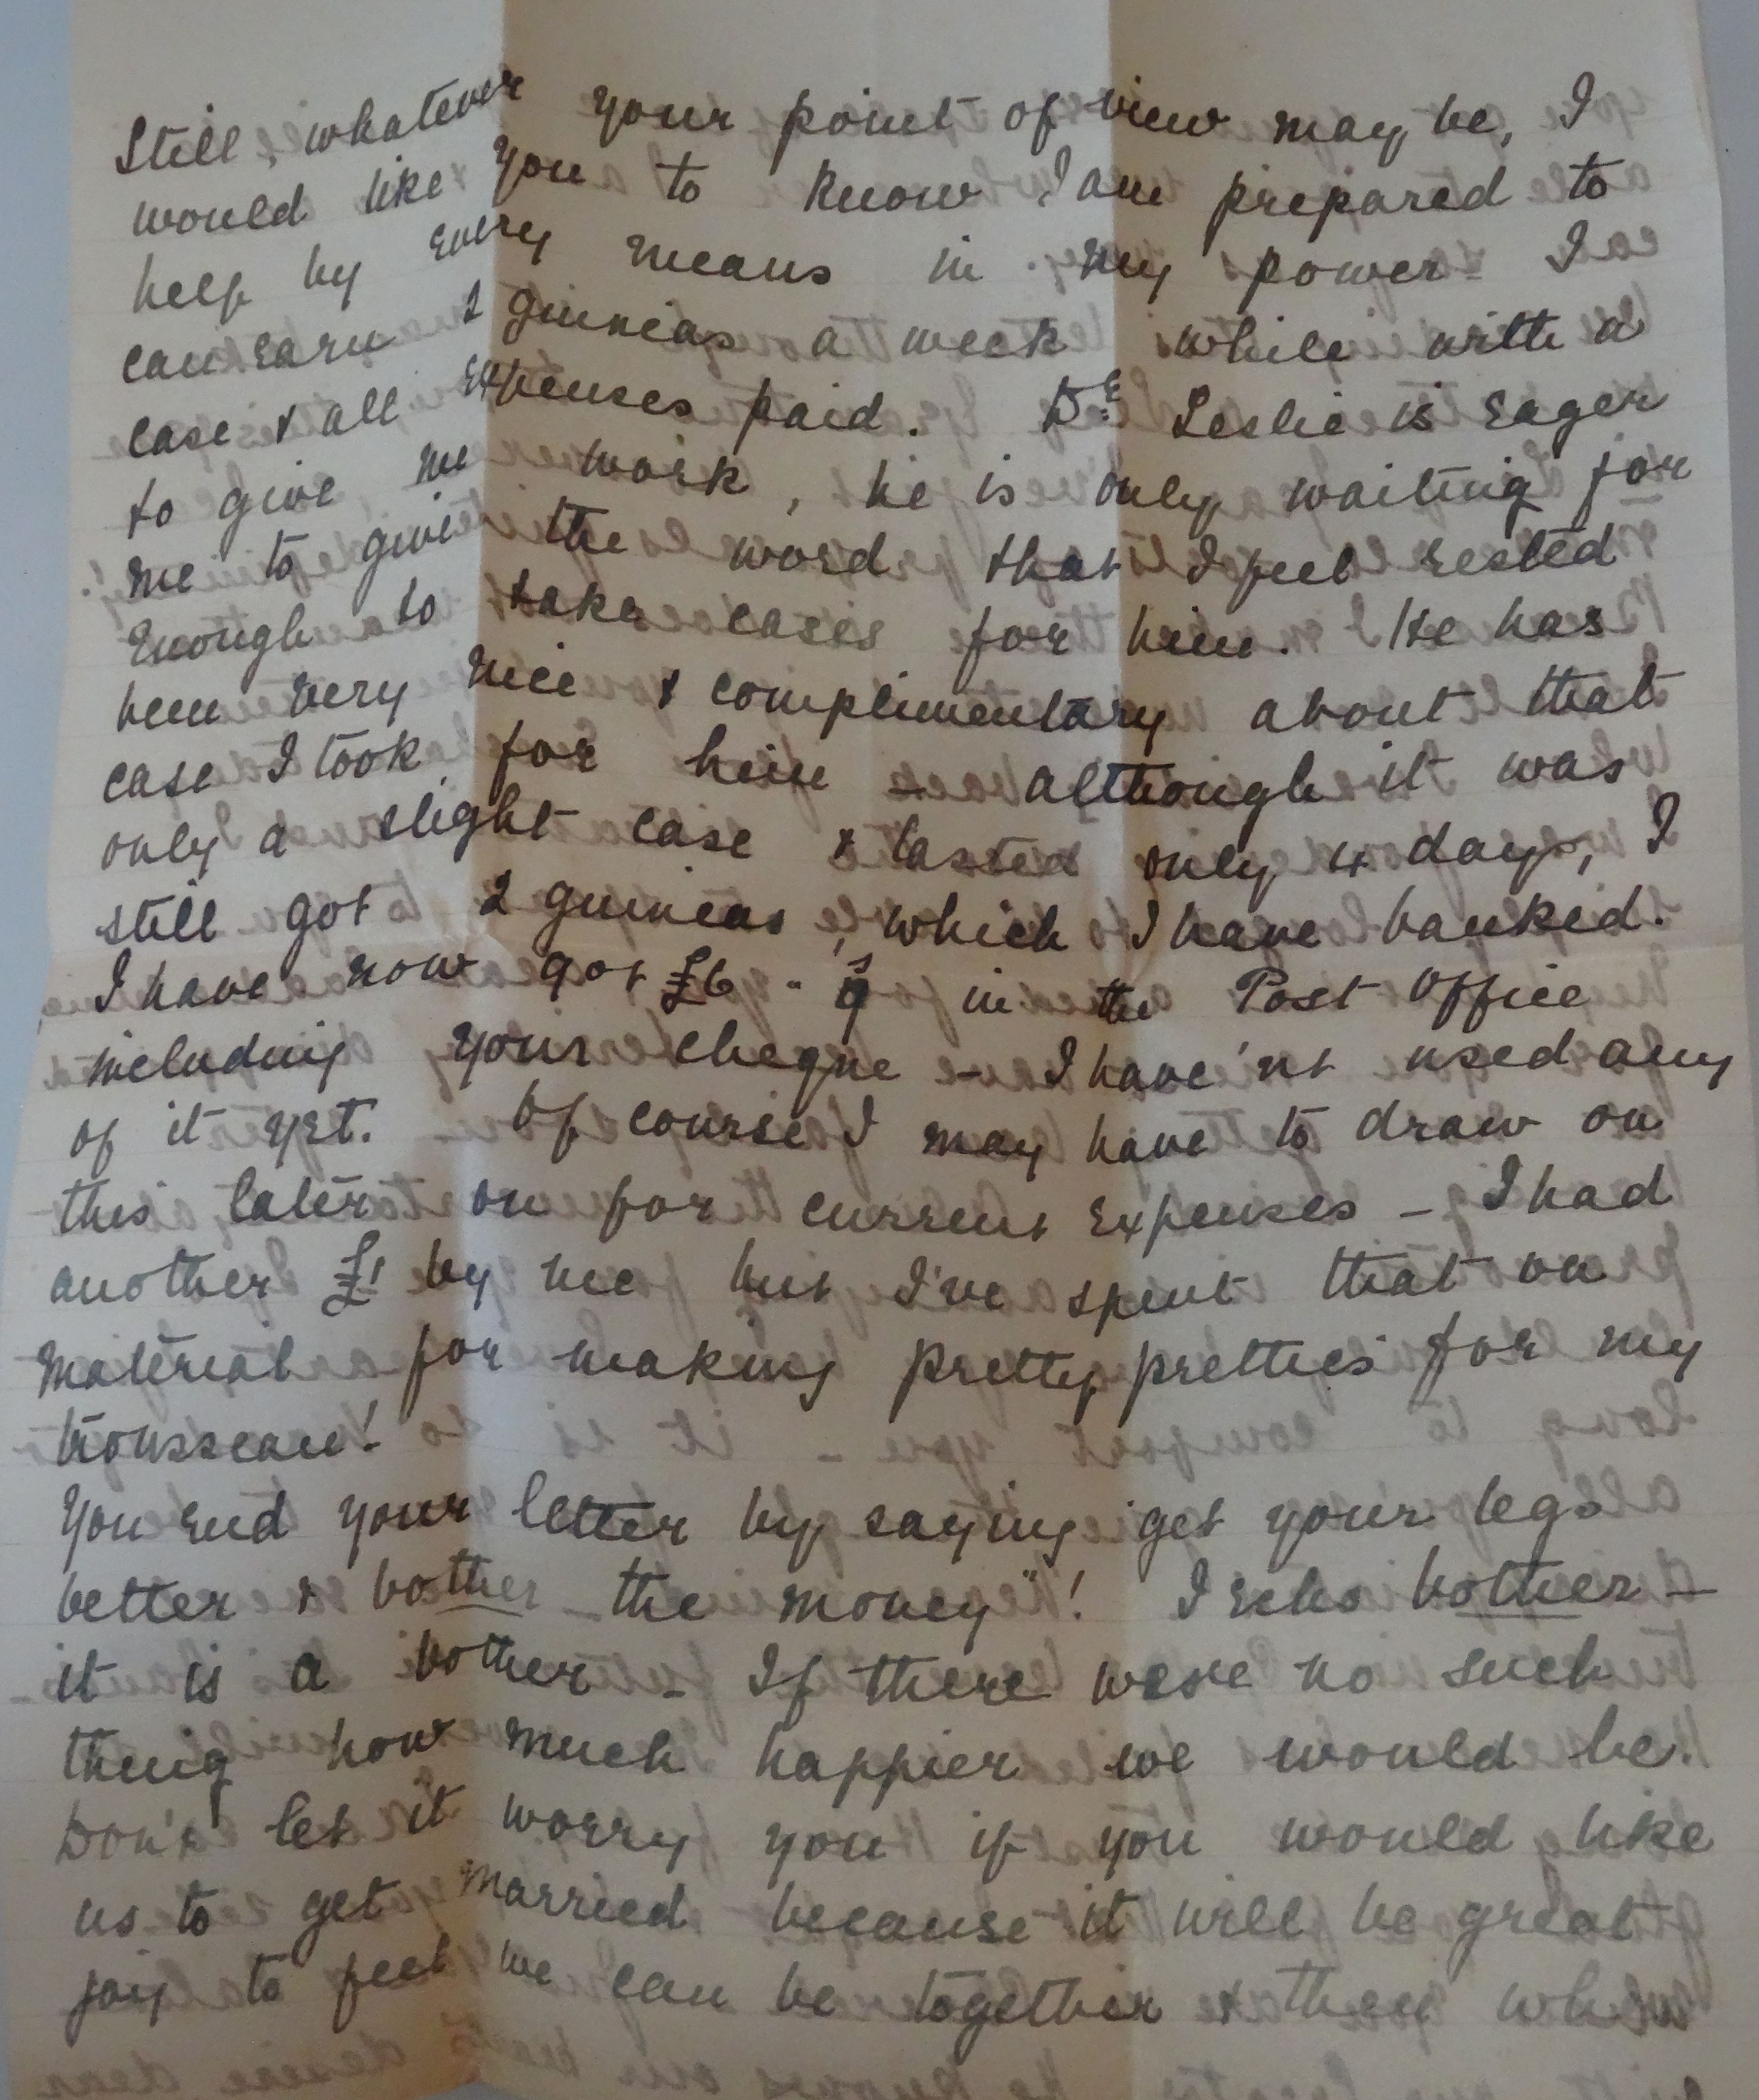 Still, whatever your point of view may be, I
would like you to know I am prepared to
help by every means in my power. I
can earn 2 guineas a week while with a
case & all expenses paid. Dr. Leslie is eager
to give me work, he is only waiting for
me to give the word that I feel rested
enough to take cases for him. He has
been very nice & complimentary about that
case I took for him – although it was
only a slight case & lasted only 4 days, I
still got 2 guineas, which I have banked.
I have now got £6 - 9s in the Post Office
including your cheque – I have'nt used any
of it yet. Of course I may have to draw on
this later on for current expenses – I had
another £1 by me but I've spent that on
material for making pretty pretties for my
trousseau!
You end your letter by saying 'get your legs
better & bother the money"! I echo bother –
it is a bother – If there were no such
thing how much happier we would be.
Don't let it worry you if you would like
us to get married because it will be great
joy to feel we can be together & then when